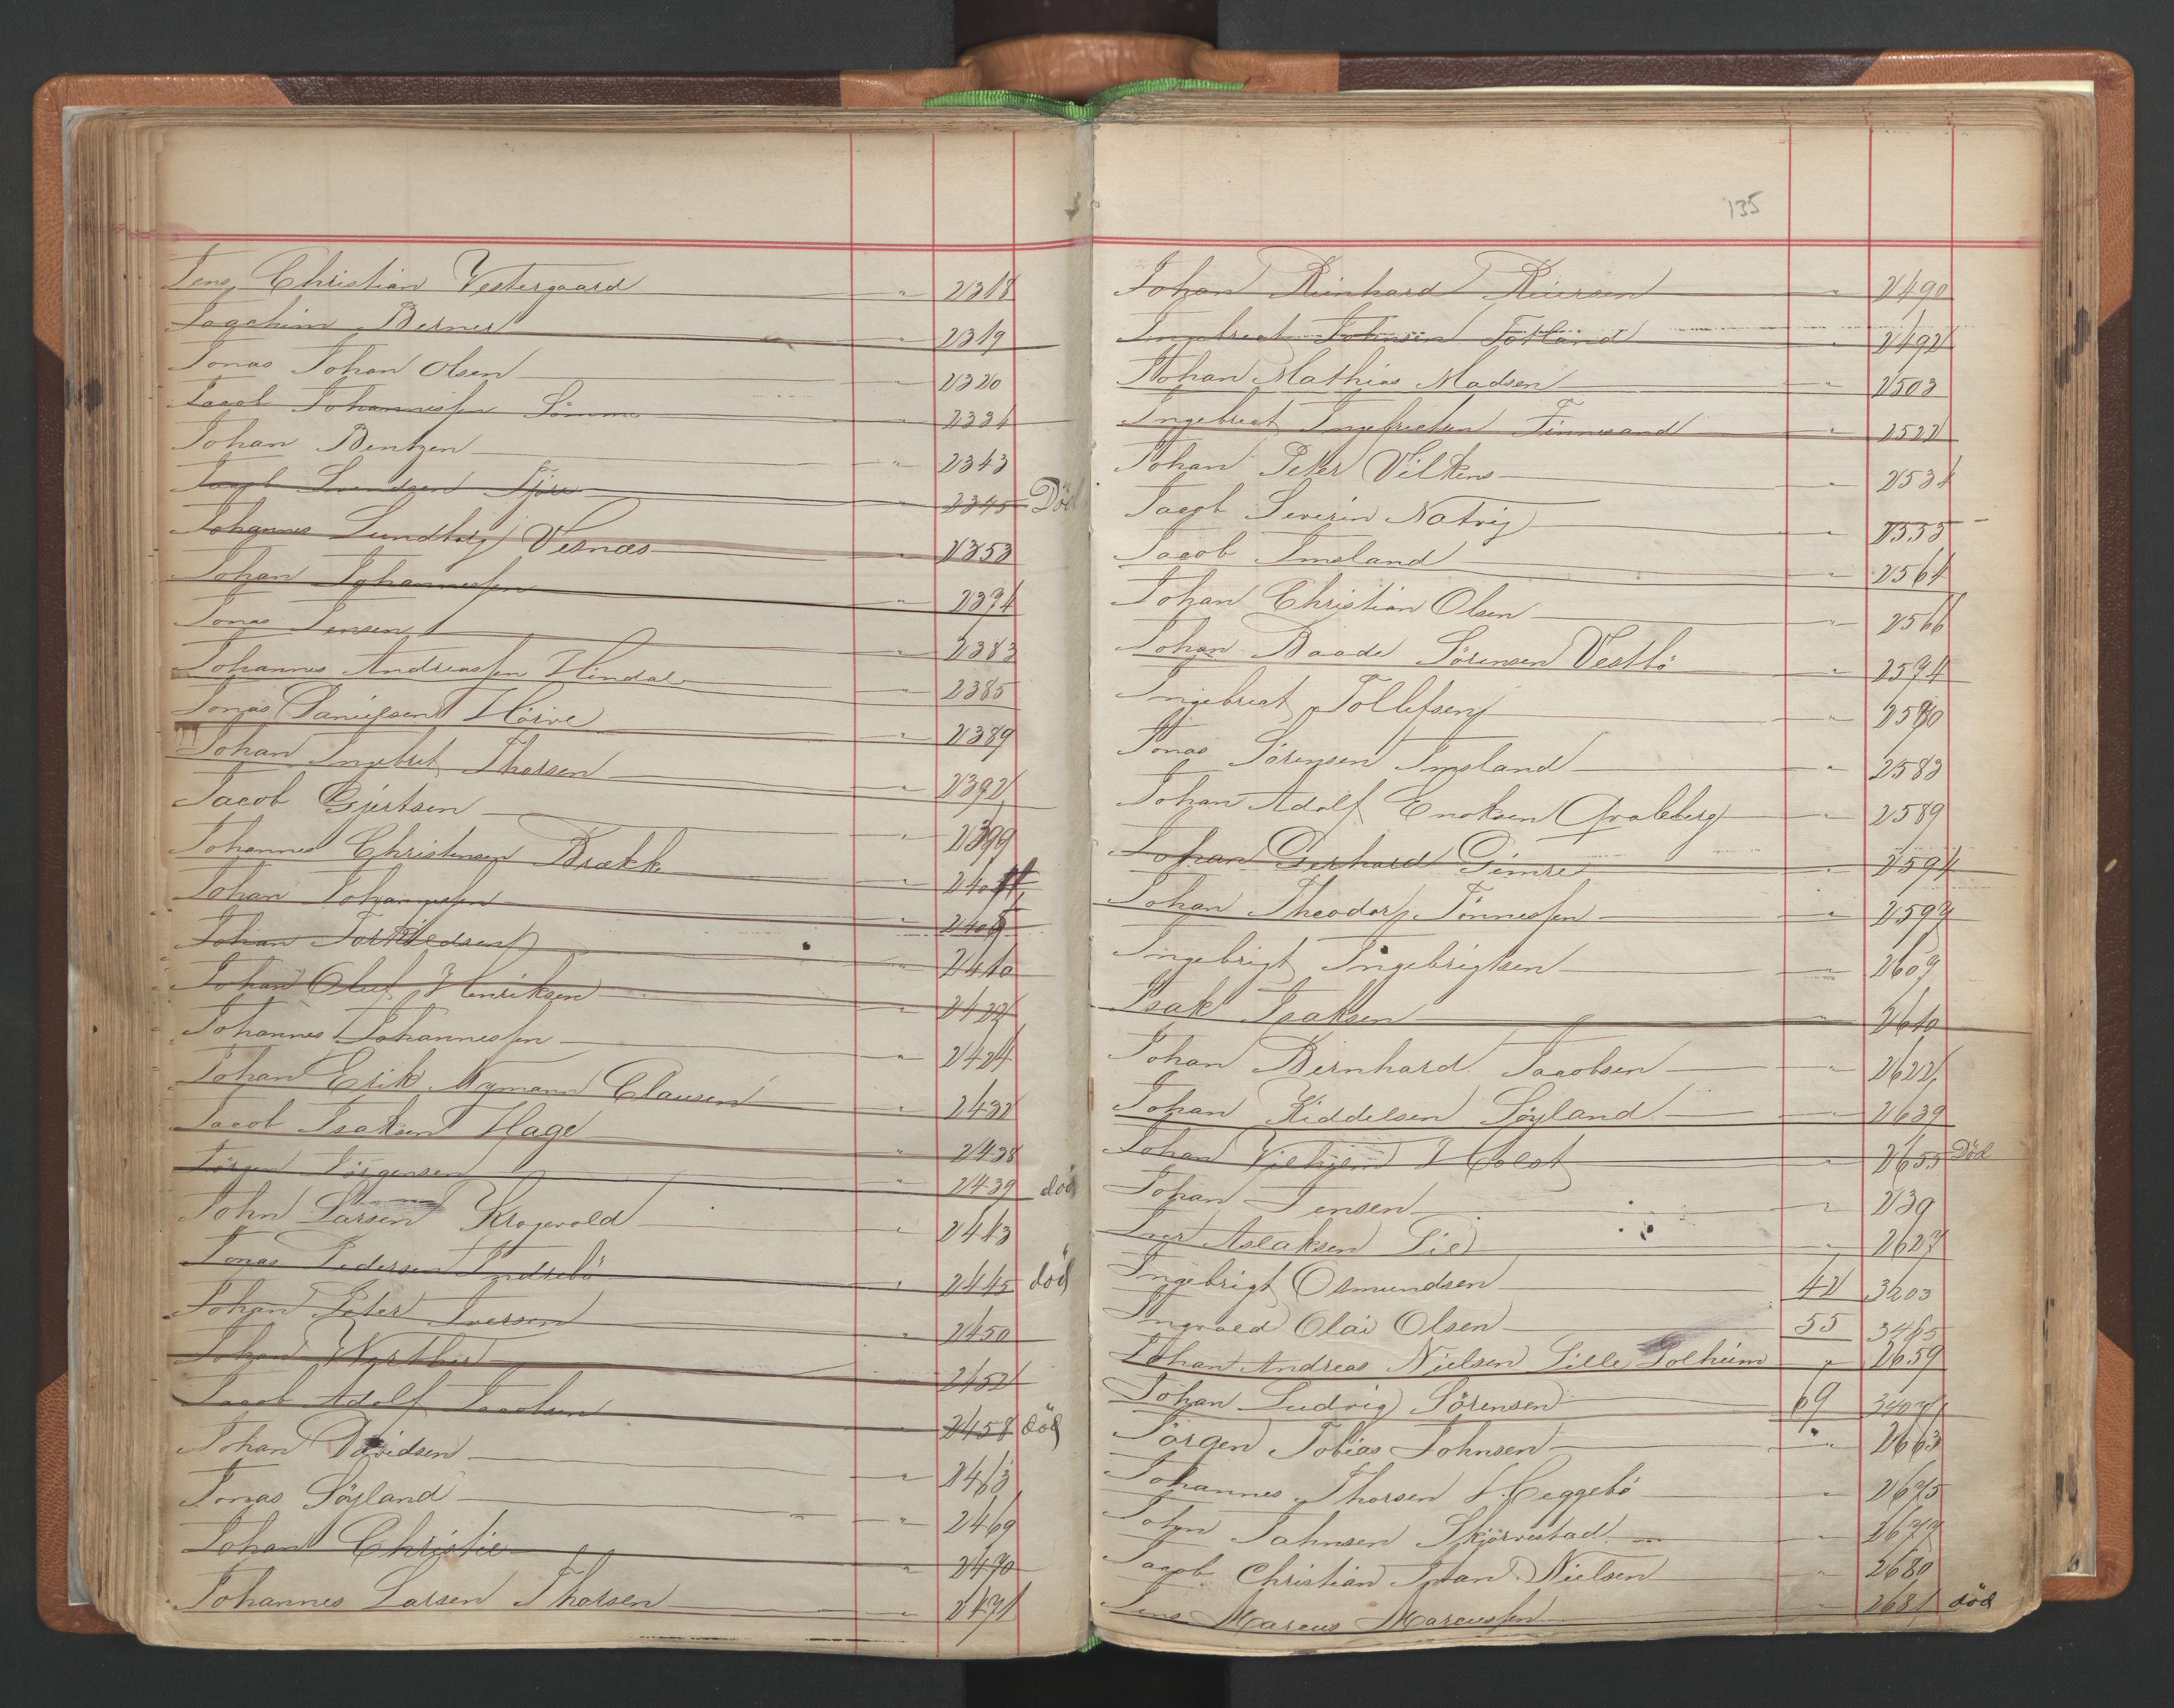 Jens Christian Vestergaard " 2318
Joachim Berner " 2319
Jonas Johan Olsen " 2320
Jacob Johannessen Sömme 2334
Johan Bentzen " 2343
Jacob Svendsen Tjöre " 2345 Död
Johannes Lundberg Vesnæs " 2353
Johan Johannessen " 2374
Jonas Jensen " 2383
Johannes Andreassen Hindal " 2385
Jonas Danielsen Hörve " 2389
Johan Ingebret Thorsen " 2392
Jacob Gjertsen " 2399
Johannes Christensen Brække "
Johan Johannessen "
Johan Torkildsen " 2410
Johan Oluf Henriksen " 2422
Johannes Johannessen " 2424
Johan Erik Nymann Clausen " 2432
Jacob Isaksen Hage " 2438
Jörgen Jörgensen " 2439 död
John Larsen Kragevold " 2443
Jonas Pedersen Indrebö " 2445 död
Johan Peter Iversen " 2450
Johan " 2452
Jacob Adolf Jacobsen " 2458 död
Johan Davidsen " 2463
Jonas Söyland " " 2469
Johan Christie " 2470
Johannes Larsen Thorsen " 2471
135
Johan Reinhard Reiersen " 2490
Ingebreat Johnsen Totland " 2492
Johan Mathias Madsen " 2503
Ingebreat Ingebretsen Finnesand " 2522
Johan Peter Vilkens " 2534
Jacob Severin Natvig " 2555
Jacob Imsland " 2564
Johan Christian Olsen " 2566
Johan Baade Sörensen Vestbö " 2574
Ingebreat Tollefsen " 2580
Jonas Sörensen Imsland " 2583
Johan Adolf Enoksen Qvaleberg " 2589
Johan Gerhard Gimre " 2594
Johan Theodor Tönnessen " 2599
Ingebrigt Ingebrigtsen " 2609
Isak Isaksen " 2610
Johan Bernhard Jacobsen " 2622
Johan Kiddelsen Söyland " 2639
Johan Vilhjem Holst " 2655 Död
Johan Jensen " 239
Iver Aslaksen Lie " 2627
Ingebrigt Osmundsen 42 3203
Ingvald Olai Olsen 55 3465
Johan Andreas Nielsen Lille Solheim " 2659
Johan Ludvig Sörensen 69
Jörgen Tobias Johnsen " 2663
Johannes Thorsen Heggebö " 2675
John Johnsen Skjörvestad " 2677
Jacob Christian Johan Nielsen " 2680
Jens Marcus Marcussen " 2681 död